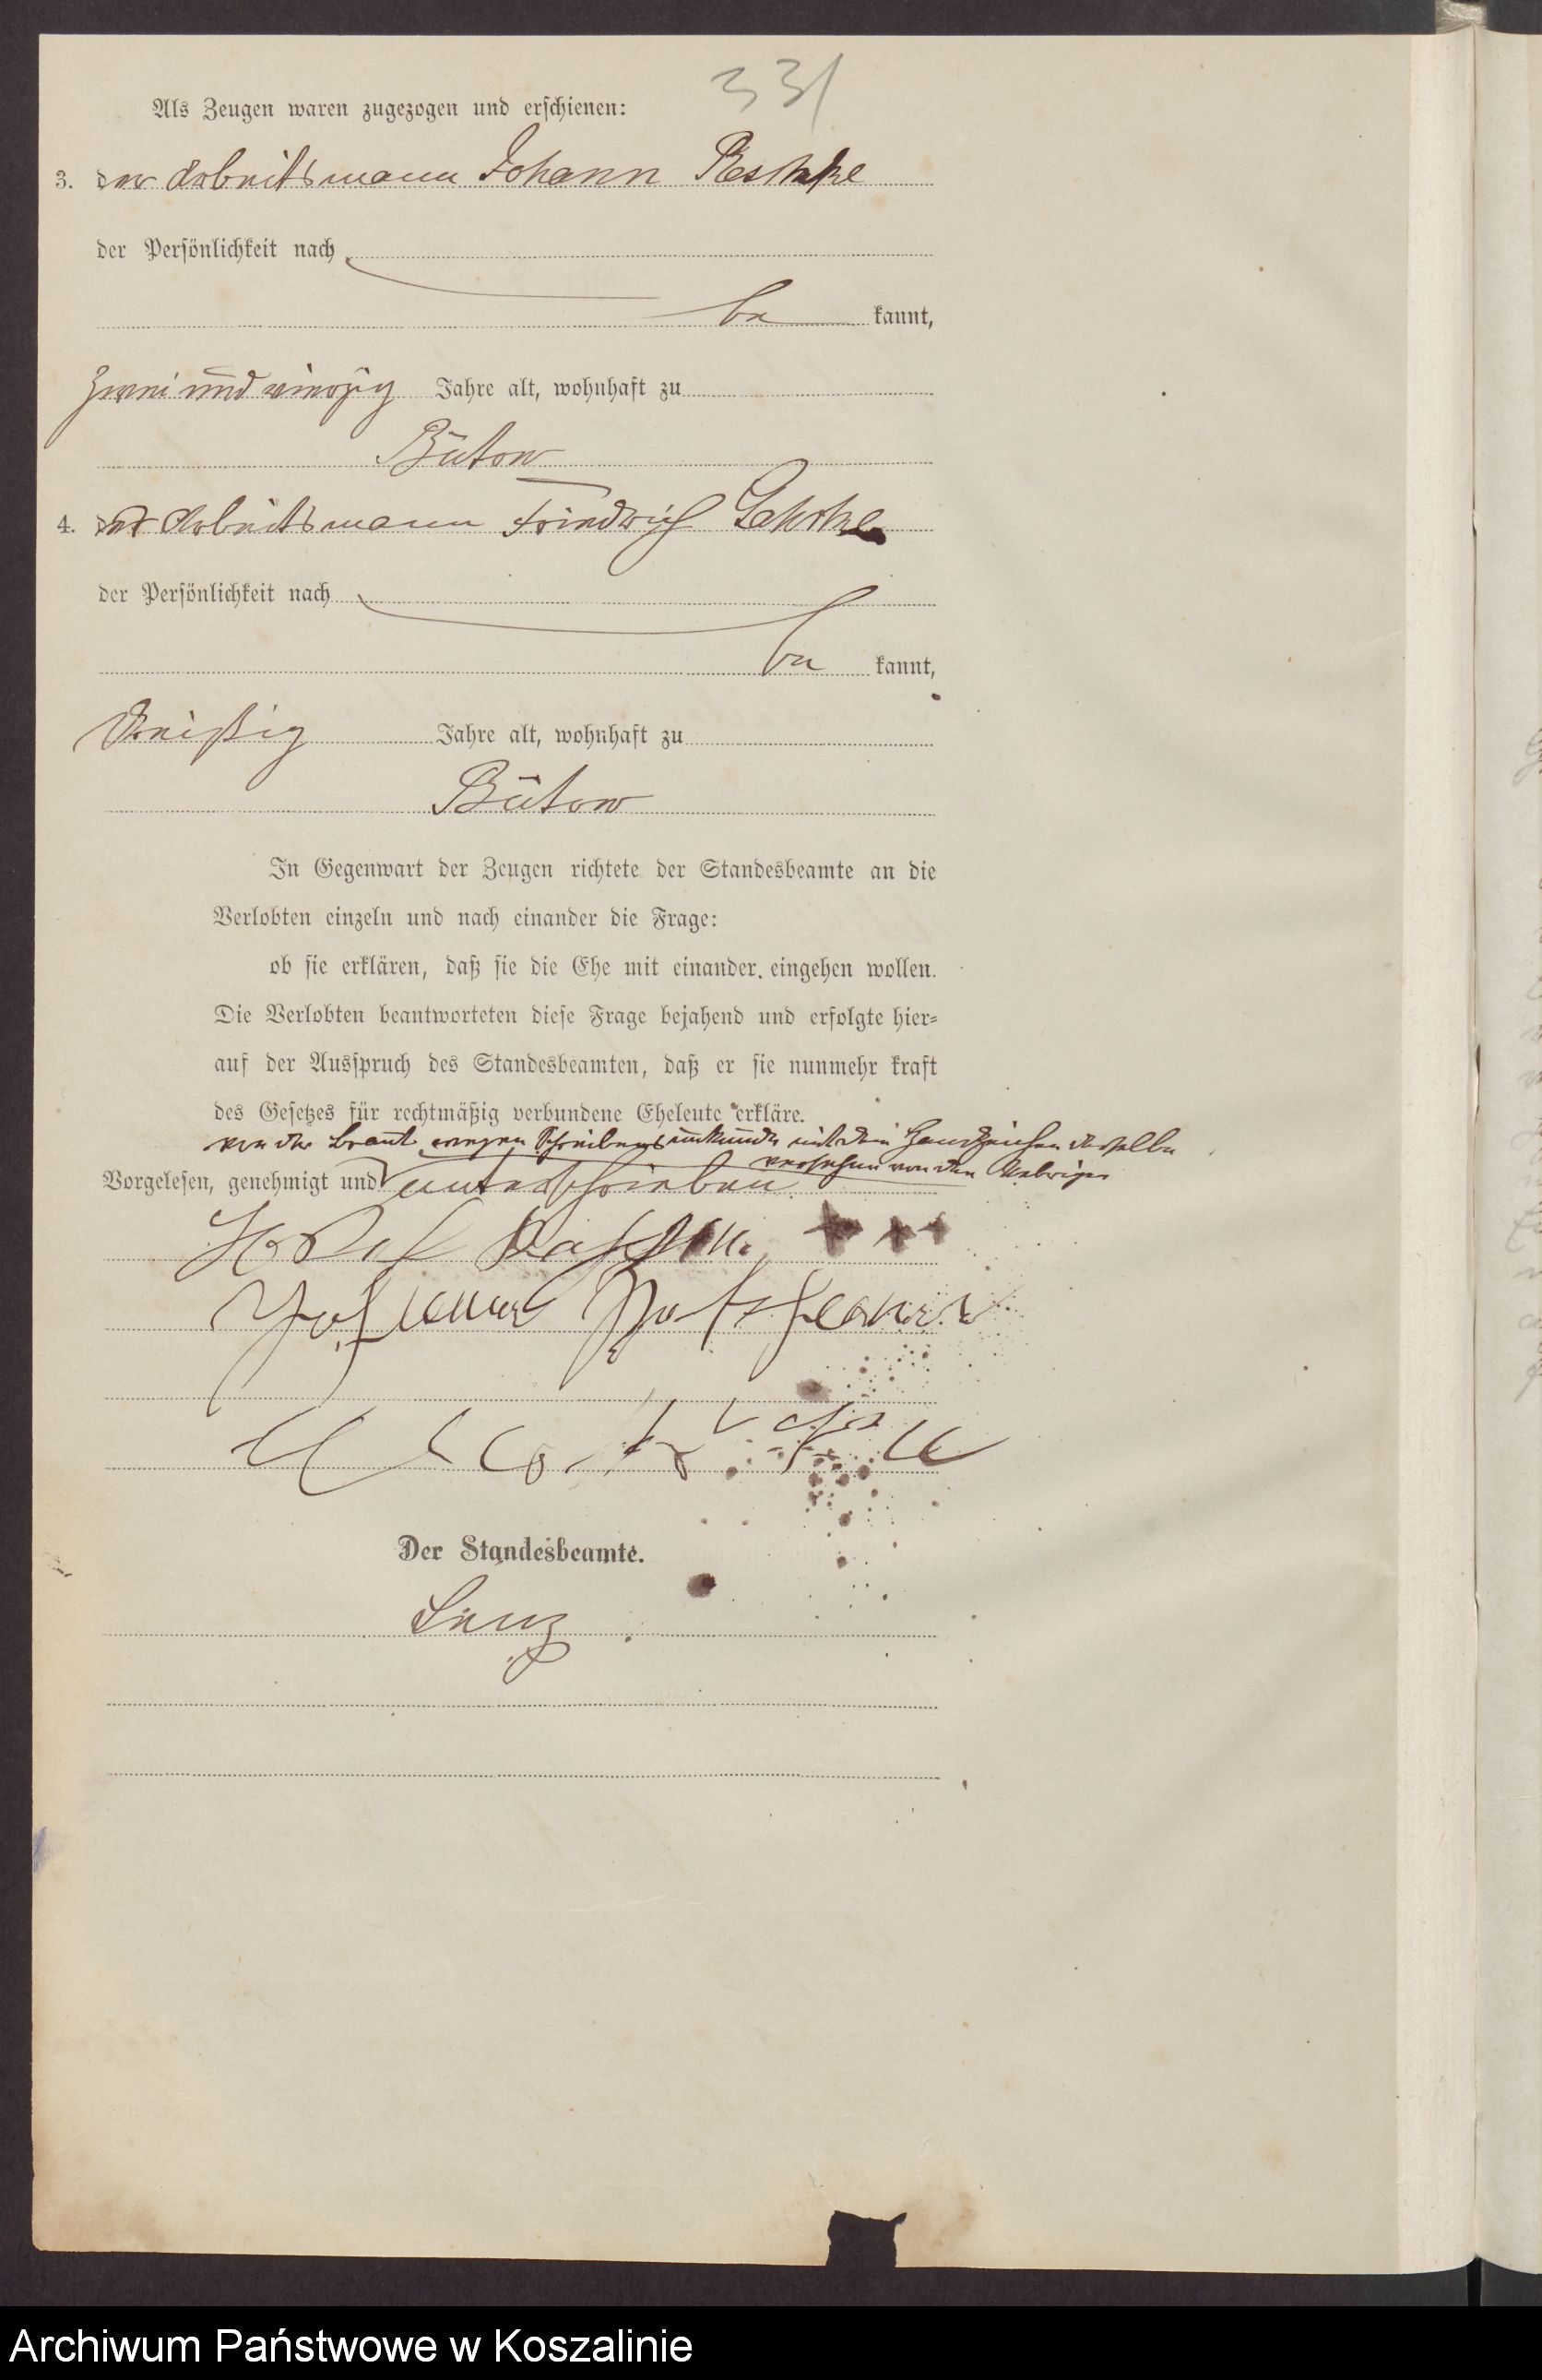 331
Als Zeugen waren zugezogen und erschienen:
3. der Arbeitsmann Johann Reschke
der Persönlichkeit nach
be kannt,
zwei und vierzig Jahre alt, wohnhaft zu
Bütow
4. der Arbeitsmann Friedrich
der Persönlichkeit nach
be kannt,
dreißig Jahre alt, wohnhaft zu
Bütow
In Gegenwart der Zeugen richtete der Standesbeamte an die
Verlobten einzeln und nach einander die Frage:
ob sie erklären, daß sie die Ehe mit einander eingehen wollen.
Die Verlobten beantworteten diese Frage bejahend und erfolgte hier-
auf der Ausspruch des Standesbeamten, daß er sie nunmehr kraft
des Gesetzes für rechtmäßig verbundene Eheleute erkläre.
von der Braut wegen Schreibensunkunde mit dem Handzeichen derselben
versehen von den Uebrigen
Vorgelesen, genehmigt und unterschrieben
+++
Der Standesbeamte.
Lenz
Archiwum Państwowe w Koszalinie